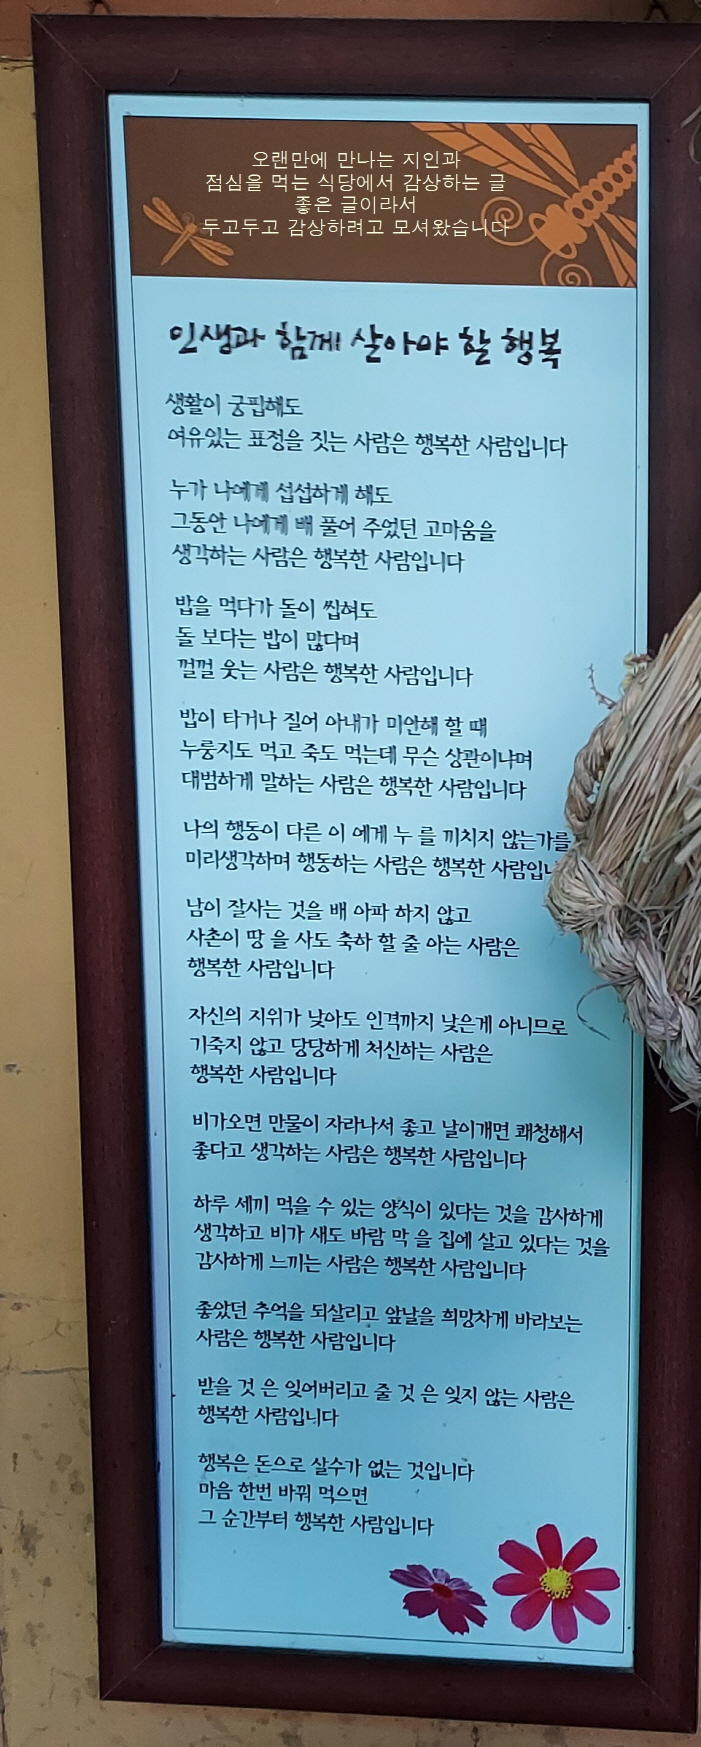 오랜만에 만나는 지인과
점심을 먹는 식당에서 감상하는 글
좋은 글이라서
두고두고 감상하려고 모셔왔습니다
인생과 함께 살아야 할 행복
생활이 궁핍해도
여유있는 표정을 짓는 사람은 행복한 사람입니다
누가 나에게 섭섭하게 해도
그동안 나에게 배 풀어 주었던 고마움을
생각하는 사람은 행복한 사람입니다
밥을 먹다가 돌이 씹혀도
돌 보다는 밥이 많다며
껄껄 웃는 사람은 행복한 사람입니다
밥이 타거나 질어 아내가 미안해 할 때
누룽지도 먹고 죽도 먹는데 무슨 상관이냐며
대범하게 말하는 사람은 행복한 사람입니다
나의 행동이 다른 이 에게 누 를 끼치지 않는가를
미리생각하며 행동하는 사람은 행복한
남이 잘사는 것을 배 아파 하지 않고
사촌이 땅 을 사도 축하 할 줄 아는 사람은
행복한 사람입니다
자신의 지위가 낮아도 인격까지 낮은게 아니므로
기죽지 않고 당당하게 처신하는 사람은
행복한 사람입니다
비가오면 만물이 자라나서 좋고 날이개면 쾌청해서
좋다고 생각하는 사람은 행복한 사람입니다
하루 세끼 먹을 수 있는 양식이 있다는 것을 감사하게
생각하고 비가 새도 바람 막 을 집에 살고 있다는 것을
감사하게 느끼는 사람은 행복한 사람입니다
좋았던 추억을 되살리고 앞날을 희망차게 바라보는
사람은 행복한 사람입니다
받을 것 은 잊어버리고 줄 것 은 잊지 않는 사람은
행복한 사람입니다
행복은 돈으로 살수가 없는 것입니다
마음 한번 바꿔 먹으면
그 순간부터 행복한 사람입니다